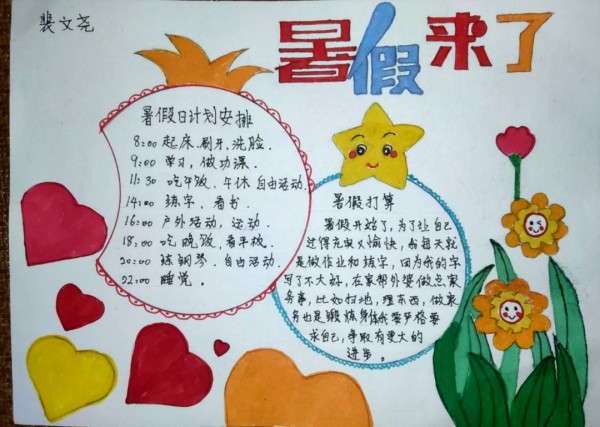 裴文尧
暑假来了
暑假日计划安排
8:00 起床.刷牙.洗脸.
9:00 学习,做功课.
11:30 吃午饭.午休 自由活动.
14:00 练字、看书.
16:00 户外活动,运动.
18:00 吃晚饭,看平板.
20:00 练钢琴.自由活动.
22:00 睡觉。
暑假打算
暑假开始了,为了让自己
过得充实又愉快,我每天就
是做作业和练字,因为我的字
写了不大好,在家帮外婆做点家
务事,比如扫地,理东西,做家
务也是锻炼身体我要严格要
求自己,争取有更大的
进步。